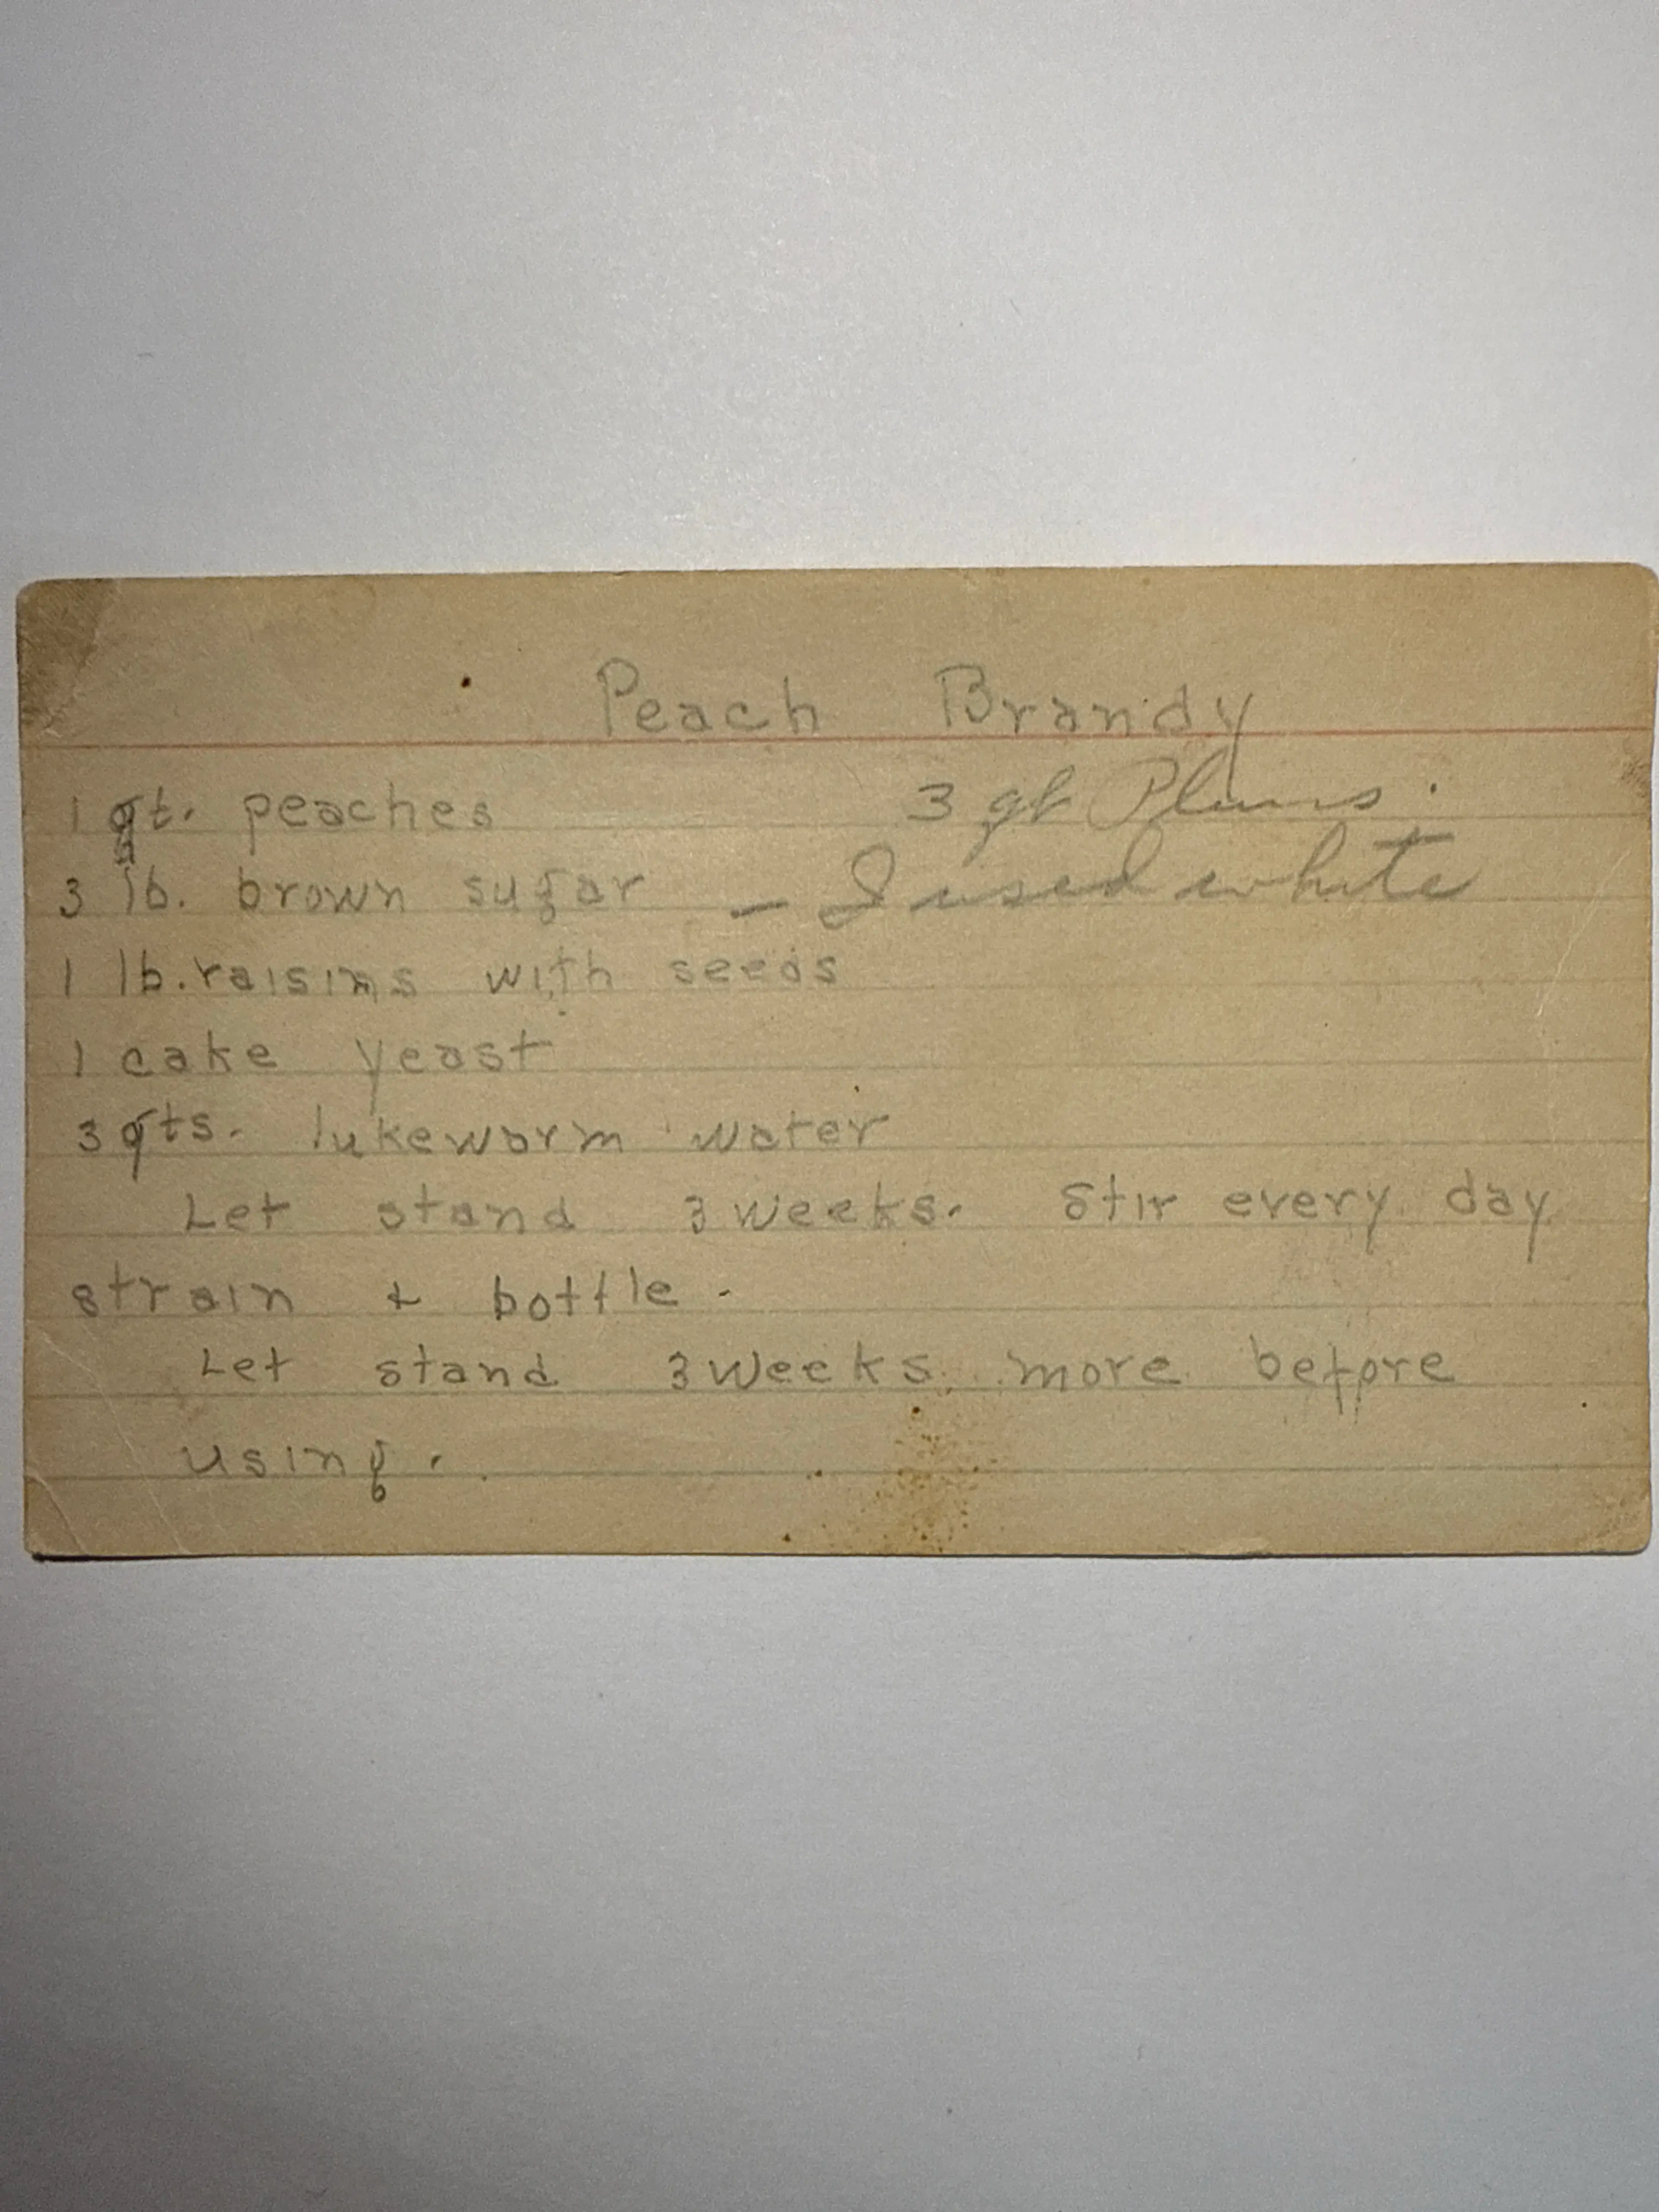 Peach Brandy
1 qt. peaches 3 qt Plums.
3 lb. brown sugar - I used white
1 lb. raisins with seeds
1 cake yeast
3 qts. lukewarm water
Let stand 3 weeks. Stir every day
strain & bottle.
Let stand 3 weeks more before
using.